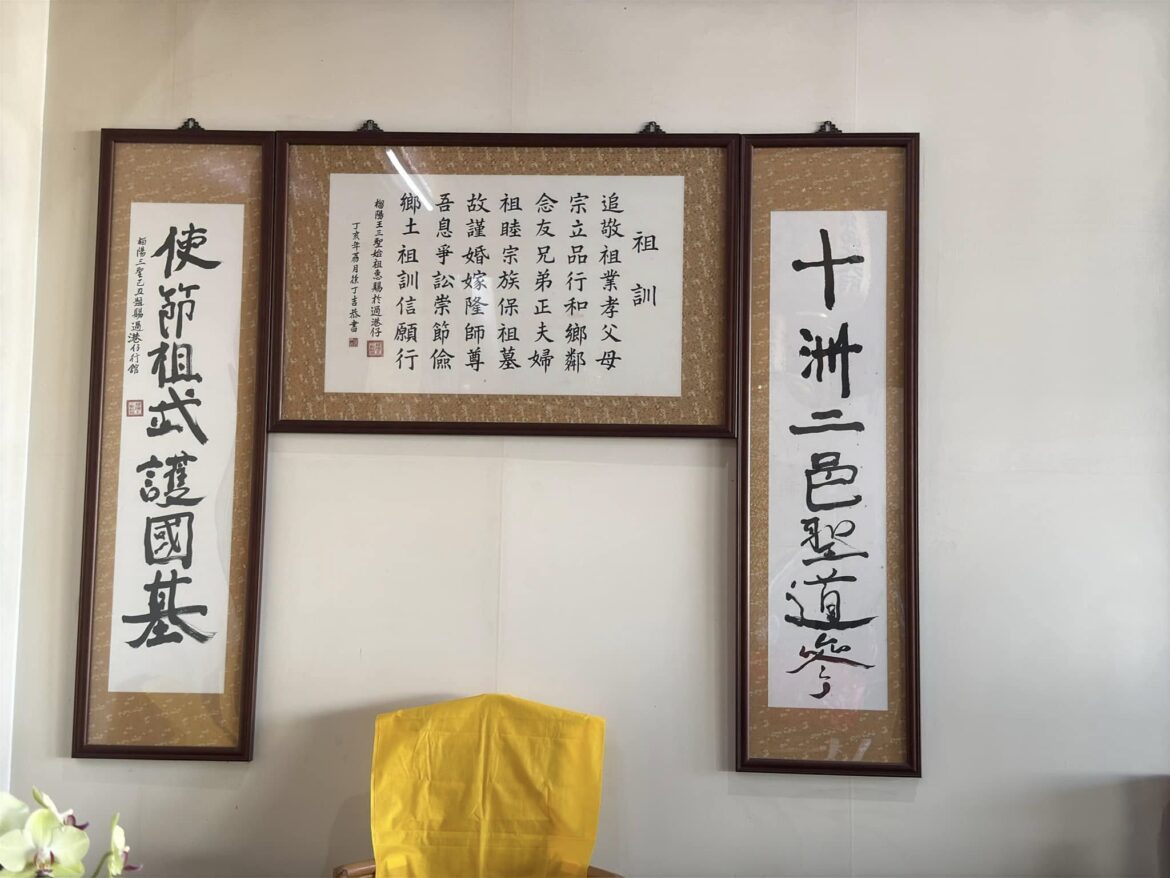 十洲二邑聖道參
祖訓
追敬祖業孝父母
宗立品行和鄉鄰
念友兄弟正夫婦
祖睦宗族保祖墓
故謹婚嫁隆師尊
吾息爭訟崇節儉
鄉土祖訓信願行
榴陽王三聖始祖惠賜於過港仔
丁亥年荔月徐丁吉恭書
使節祖武護國基
榴陽三聖己丑盤賜過港仔行館